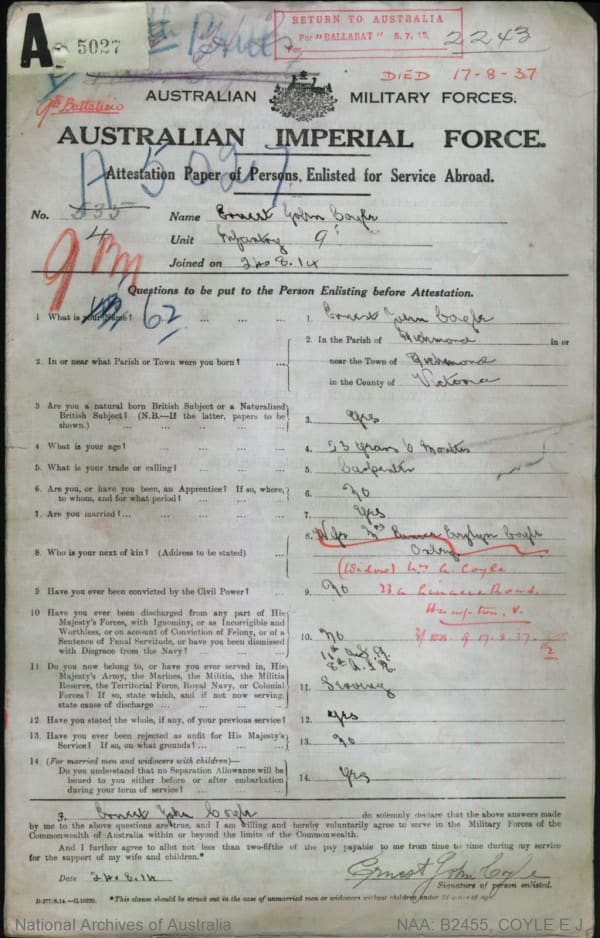 A 5027
RETURN TO AUSTRALIA
Per "BALLARAT" 5.7.15
For
2243
DIED 17-8-37
9th Battalion
AUSTRALIAN MILITARY FORCES.
AUSTRALIAN IMPERIAL FORCE.
A 5027
Attestation Paper of Persons, Enlisted for Service Abroad.
No. 535 Name Ernest John Coyle
4 Unit Infantry 9th
Joined on 24.8.14
9 Bn
Questions to be put to the Person Enlisting before Attestation.
62
1 What is your Name? ... ... ... 1. Ernest John Coyle
2. In or near what Parish or Town were you born? ... 2. In the Parish of Richmond in or
near the Town of Richmond
in the County of Victoria
3 Are you a natural born British Subject or a Naturalized
British Subject? (N.B.—If the latter, papers to be
shown.) ... ... ... ... 3. Yes
4 What is your age? ... ... ... 4. 23 years 6 Months
5. What is your trade or calling? ... ... ... 5. Carpenter
6. Are you, or have you been, an Apprentice? If so, where,
to whom, and for what period? ... ... ... 6. No
7. Are you married? ... ... ... ... 7. Yes
8 Who is your next of kin? (Address to be stated) ... 8. Wife Mrs Evylyn Coyle
Oxley
(Widow) Mrs A. Coyle
9 Have you ever been convicted by the Civil Power? ... 9. No Road.
Hampton. V.
10 Have you ever been discharged from any part of His
Majesty's Forces, with Ignominy, or as Incorrigible and
Worthless, or on account of Conviction of Felony, or of a
Sentence of Penal Servitude, or have you been dismissed
with Disgrace from the Navy? ... ... ... 10. No
17.9.37.
11 Do you now belong to, or have you ever served in, His
Majesty's Army, the Marines, the Militia, the Militia
Reserve, the Territorial Force, Royal Navy, or Colonial
Forces? If so, state which, and if not now serving,
state cause of discharge ... ... ... 11. Serving
12. Have you stated the whole, if any, of your previous service? 12. Yes
13. Have you ever been rejected as unfit for His Majesty's
Service? If so, on what grounds? ... ... ... 13. No
14 (For married men and widowers with children)—
Do you understand that no Separation Allowance will be
issued to you either before or after embarkation
during your term of service? ... ... ... 14. Yes
I, Ernest John Coyle do solemnly declare that the above answers made
by me to the above questions are true, and I am willing and hereby voluntarily agree to serve in the Military Forces of the
Commonwealth of Australia within or beyond the limits of the Commonwealth.
And I further agree to allot not less than two-fifths of the pay payable to me from time to time during my service
for the support of my wife and children.*
Date 24.8.14 Ernest John Coyle
Signature of person enlisted.
*This clause should be struck out in the case of unmarried men or widowers without children under 18 years of age.
National Archives of Australia NAA: B2455, COYLE E J